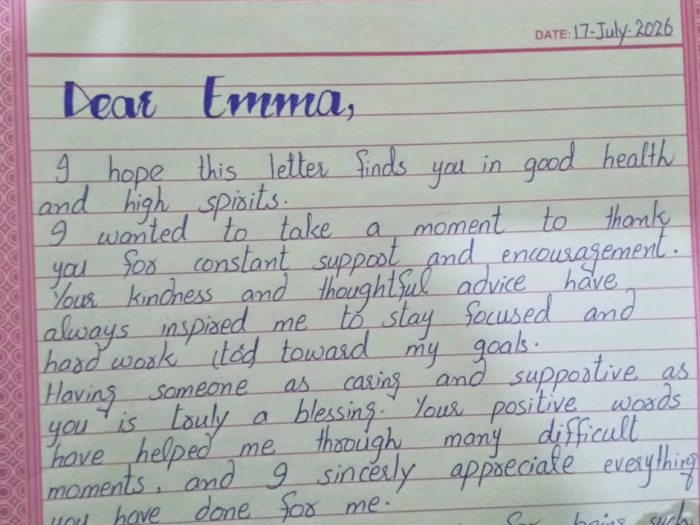 DATE: 17-July-2026
Dear Emma,
I hope this letter finds you in good health
and high spirits.
I wanted to take a moment to thank
you for constant support and encouragement.
Your kindness and thoughtful advice have
always inspired me to stay focused and
hard work toward my goals.
Having someone as caring and supportive as
you is truly a blessing. Your positive words
have helped me through many difficult
moments, and I sincerly appreciate everything
you have done for me.
for being such